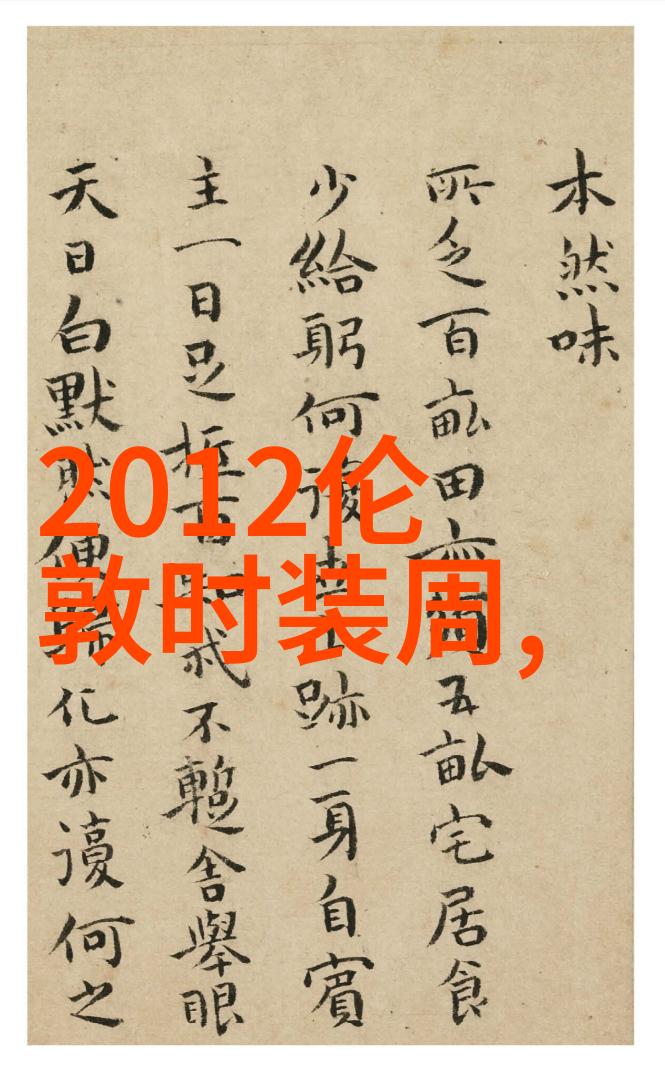 本然味
所乏百畝田亦爾五畝宅居食
少給躬何復出跡一身自賓
主一日足百不暫舍舉眼
天日白默然化亦復何之
2012伦
敦时装周,